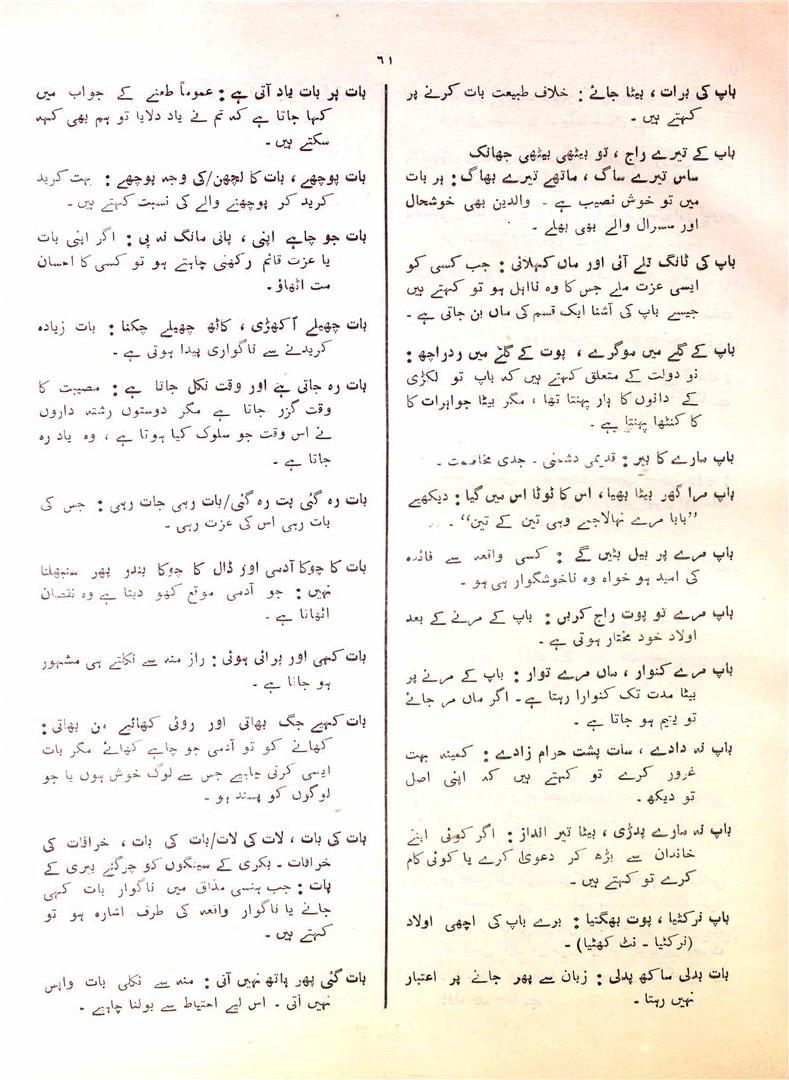 ٦١
باپ کی برات ، بیٹا جائے : خلاف طبیعت بات کرنے پر
کہتے ہیں ۔
باپ کے تیرے راج ، تو بیٹھی بیٹھی جھانک
ساس تیرے ساگ ، ماتھے تیرے بھاگ : ہر بات
میں تو خوش نصیب ہے ۔ والدین بھی خوشحال
اور سسرال والے بھی بھلے ۔
باپ کی ٹانگ تلے آئی اور ماں کہلائی : جب کسی کو
ایسی عزت ملے جس کا وہ نااہل ہو تو کہتے ہیں
جیسے باپ کی آشنا ایک قسم کی ماں بن جاتی ہے ۔
باپ کے گلے میں موگرے ، پوت کے گلے میں ردراچھ :
نو دولت کے متعلق کہتے ہیں کہ باپ تو لکڑی
کے دانوں کا ہار پہنتا تھا ، مگر بیٹا جواہرات کا
کا کنٹھا پہنتا ہے ۔
باپ مارے کا بیر : قدیمی دشمنی ۔ جدی مخاصمت ۔
باپ مرا گھر بیٹا بھیا ، اس کا ٹوٹا اس میں گیا : دیکھیے
”بابا مرے نہالا جمے وہی تین کے تین“ ۔
باپ مرے پر بیل بٹیں گے : کسی واقعہ سے فائدہ
کی امید ہو خواہ وہ ناخوشگوار ہی ہو ۔
باپ مرے تو پوت راج کریں : باپ کے مرنے کے بعد
اولاد خود مختار ہوتی ہے ۔
باپ مرے کنوار ، ماں مرے توار : باپ کے مرنے پر
بیٹا مدت تک کنوارا رہتا ہے ۔ اگر ماں مر جائے
تو یتیم ہو جاتا ہے ۔
باپ نہ دادے ، سات پشت حرام زادے : کمینہ بہت
غرور کرے تو کہتے ہیں کہ اپنی اصل
تو دیکھ ۔
باپ نہ مارے پدڑی ، بیٹا تیر انداز : اگر کوئی اپنے
خاندان سے بڑھ کر دعویٰ کرے یا کوئی کام
کرے تو کہتے ہیں ۔
باپ نرکٹیا ، پوت بھگتیا : برے باپ کی اچھی اولاد
(نرکٹیا ۔ نٹ کھٹیا) ۔
بات بدلی ساکھ بدلی : زبان سے پھر جانے پر اعتبار
نہیں رہتا ۔
بات پر بات یاد آتی ہے : عموماً طعنے کے جواب میں
کہا جاتا ہے کہ تم نے یاد دلایا تو ہم بھی کہہ
سکتے ہیں ۔
بات پوچھے ، بات کا لچھن/کی وجہ پوچھے : بہت کرید
کرید کر پوچھنے والے کی نسبت کہتے ہیں ۔
بات جو چاہے اپنی ، پانی مانگ نہ پی : اگر اپنی بات
یا عزت قائم رکھنی چاہتے ہو تو کسی کا احسان
مت اٹھاؤ ۔
بات چھیلے اکھڑی ، کاٹھ چھیلے چکنا : بات زیادہ
کریدنے سے ناگواری پیدا ہوتی ہے ۔
بات رہ جاتی ہے اور وقت نکل جاتا ہے : مصیبت کا
وقت گزر جاتا ہے مگر دوستوں رشتہ داروں
نے اس وقت جو سلوک کیا ہوتا ہے ، وہ یاد رہ
جاتا ہے ۔
بات رہ گئی پت رہ گئی/بات رہی جات رہی : جس کی
بات رہی اس کی عزت رہی ۔
بات کا چوکا آدمی اور ڈال کا چوکا بندر پھر سنبھلتا
نہیں : جو آدمی موقع کھو دیتا ہے وہ نقصان
اٹھاتا ہے ۔
بات کہی اور پرائی ہوئی : راز منہ سے نکلتے ہی مشہور
ہو جاتا ہے ۔
بات کہیے جگ بھاتی اور روٹی کھائیے من بھاتی :
کھانے کو تو آدمی جو چاہے کھائے مگر بات
ایسی کرنی چاہیے جس سے لوگ خوش ہوں یا جو
لوگوں کو پسند ہو ۔
بات کی بات ، لات کی لات/بات کی بات ، خرافات کی
خرافات ۔ بکری کے سینگوں کو چرگئے بیری کے
پات : جب ہنسی مذاق میں ناگوار بات کہی
جائے یا ناگوار واقعہ کی طرف اشارہ ہو تو
کہتے ہیں ۔
بات گئی پھر ہاتھ نہیں آتی : منہ سے نکلی بات واپس
نہیں آتی ۔ اس لیے احتیاط سے بولنا چاہیے ۔